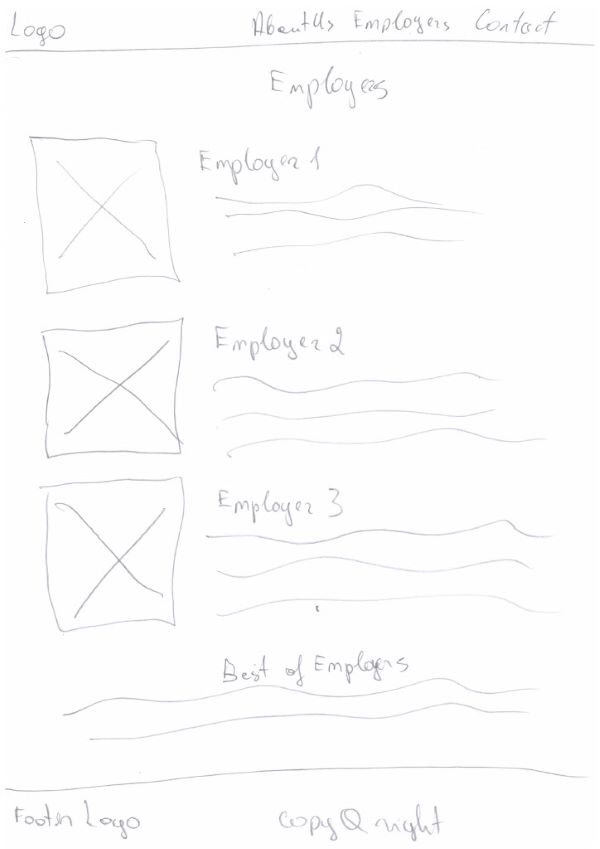 Logo About Us Employers Contact
Employers
Employer 1
Employer 2
Employer 3
Best of Employers
Footer Logo copy @ right